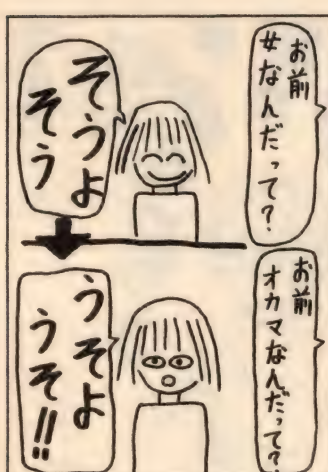 お前
女なんだって?
そうよ
そう
お前
オカマなんだって?
うそよ
うそ!!